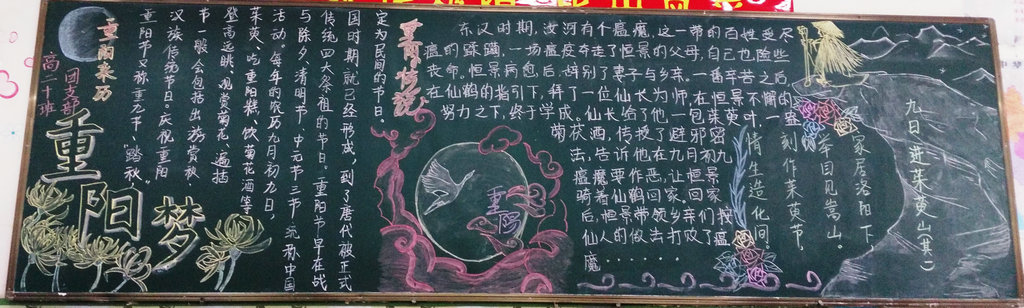 重阳来历
高二十班
团支部
重阳节又称重九节、“踏秋”
汉族传统节日。庆祝重阳
节一般会包括出游赏秋、
登高远眺、观赏菊花、遍插
茱萸、吃重阳糕、饮菊花酒等
活动。每年的农历九月初九日,
与除夕、清明节、中元节三节统称中国
传统四大祭祖的节日。重阳节早在战
国时期就已经形成,到了唐代被正式
定为民间的节日。
重阳梦
重阳传说
东汉时期,汝河有个瘟魔,这一带的百姓受尽
瘟的蹂躏,一场瘟疫夺走了恒景的父母,自己也险些
丧命。恒景病愈后,辞别了妻子与乡亲。一番辛苦之后
在仙鹤的指引下,拜了一位仙长为师,在恒景不懈的
努力之下,终于学成。仙长给了他一包茱萸叶,一
菊花酒,传授了避邪密
法,告诉他在九月初九
瘟魔要作恶回家。恒景
骑着仙鹤回家。回家
后,恒景带领乡亲们按
仙人的做法打败了瘟
魔......
重阳
九日进茱萸山(其一)
家居洛阳下
举目见嵩山。
刻作茱萸节,
情生造化间。